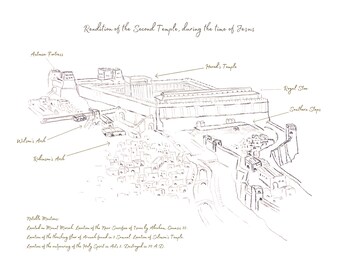 Rendition of the Second Temple, during the time of Jesus
Antonia Fortress
Herod's Temple
Royal Stoa
Southern Steps
Wilson's Arch
Robinson's Arch
Notable Mentions
Located on Mount Moriah. Location of the Near Sacrifice of Isaac by Abraham, Genesis 22
Location of the threshing floor of Araunah found in 2 Samuel. Location of Solomon's Temple
Location of the outpouring of the Holy Spirit in Acts 2. (Destroyed in 70 A.D)